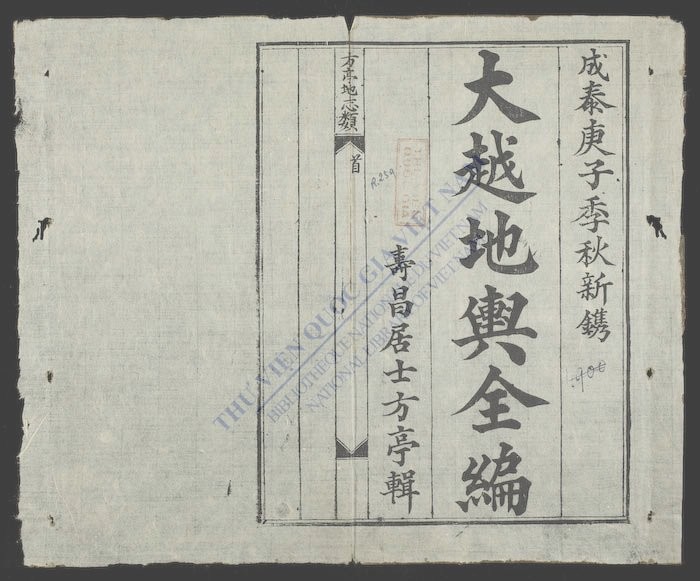 成泰庚子季秋新鐫
大越地輿全編
壽昌居士方亭輯
方亭地志類
首
R.259
900
THƯ VIỆN QUỐC GIA VIỆT NAM
BIBLIOTHÈQUE NATIONALE DU VIETNAM
NATIONAL LIBRARY OF VIETNAM